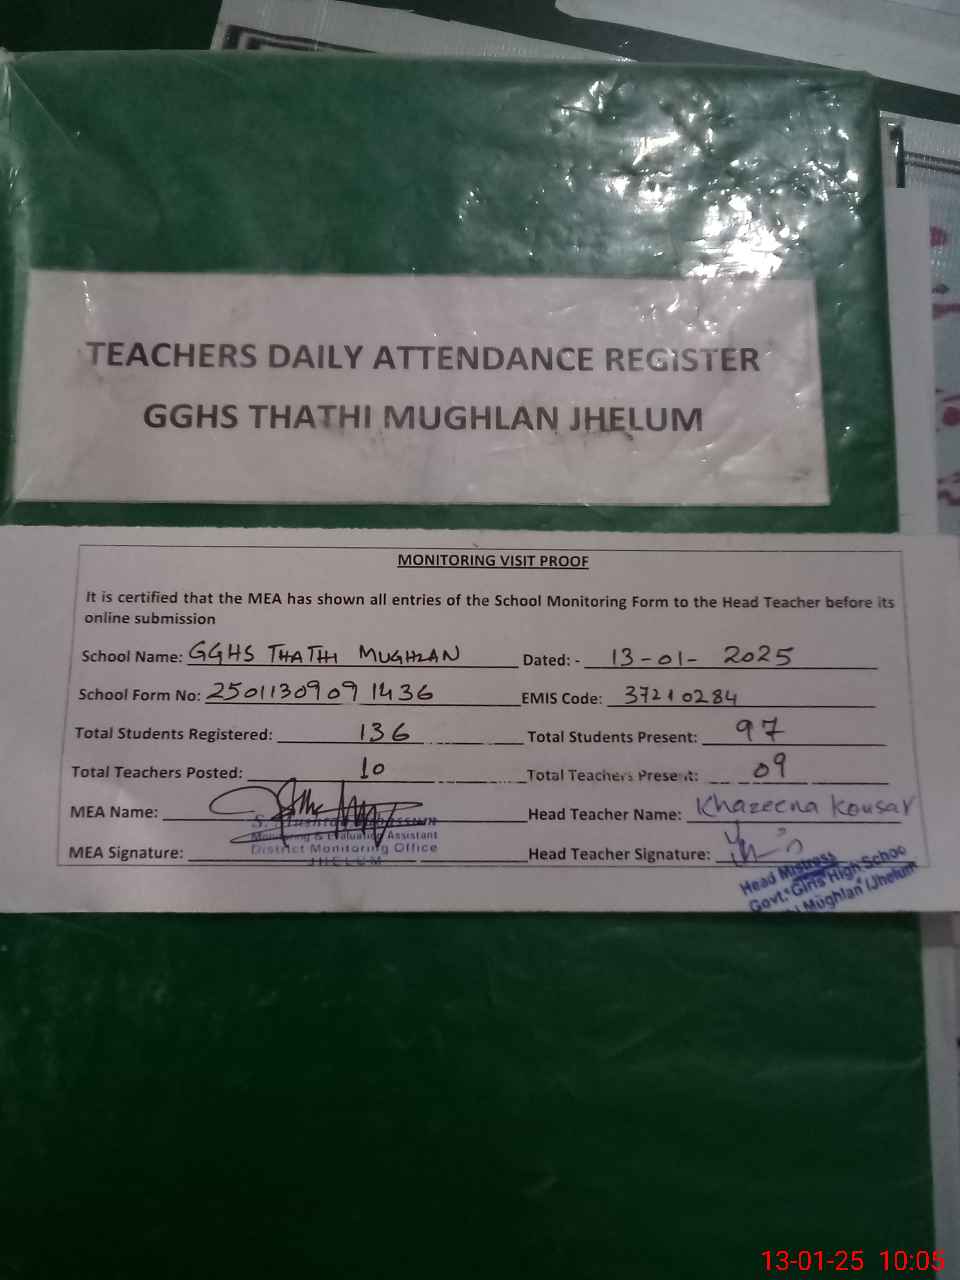 TEACHERS DAILY ATTENDANCE REGISTER
GGHS THATHI MUGHLAN JHELUM
MONITORING VISIT PROOF
It is certified that the MEA has shown all entries of the School Monitoring Form to the Head Teacher before its
online submission
School Name: GGHS THATHI MUGHLAN Dated: - 13-01-2025
School Form No: 2501130909 1436 EMIS Code: 37210284
Total Students Registered: 136 Total Students Present: 97
Total Teachers Posted: 10 Total Teachers Present: 09
MEA Name: Head Teacher Name: Khazeena Kousar
Monitoring & Evaluating Assistant
District Monitoring Office
JHELUM
MEA Signature: Head Teacher Signature:
Head Mistress
Govt. Girls High Schoo
Mughlan (Jhelum
13-01-25 10:05